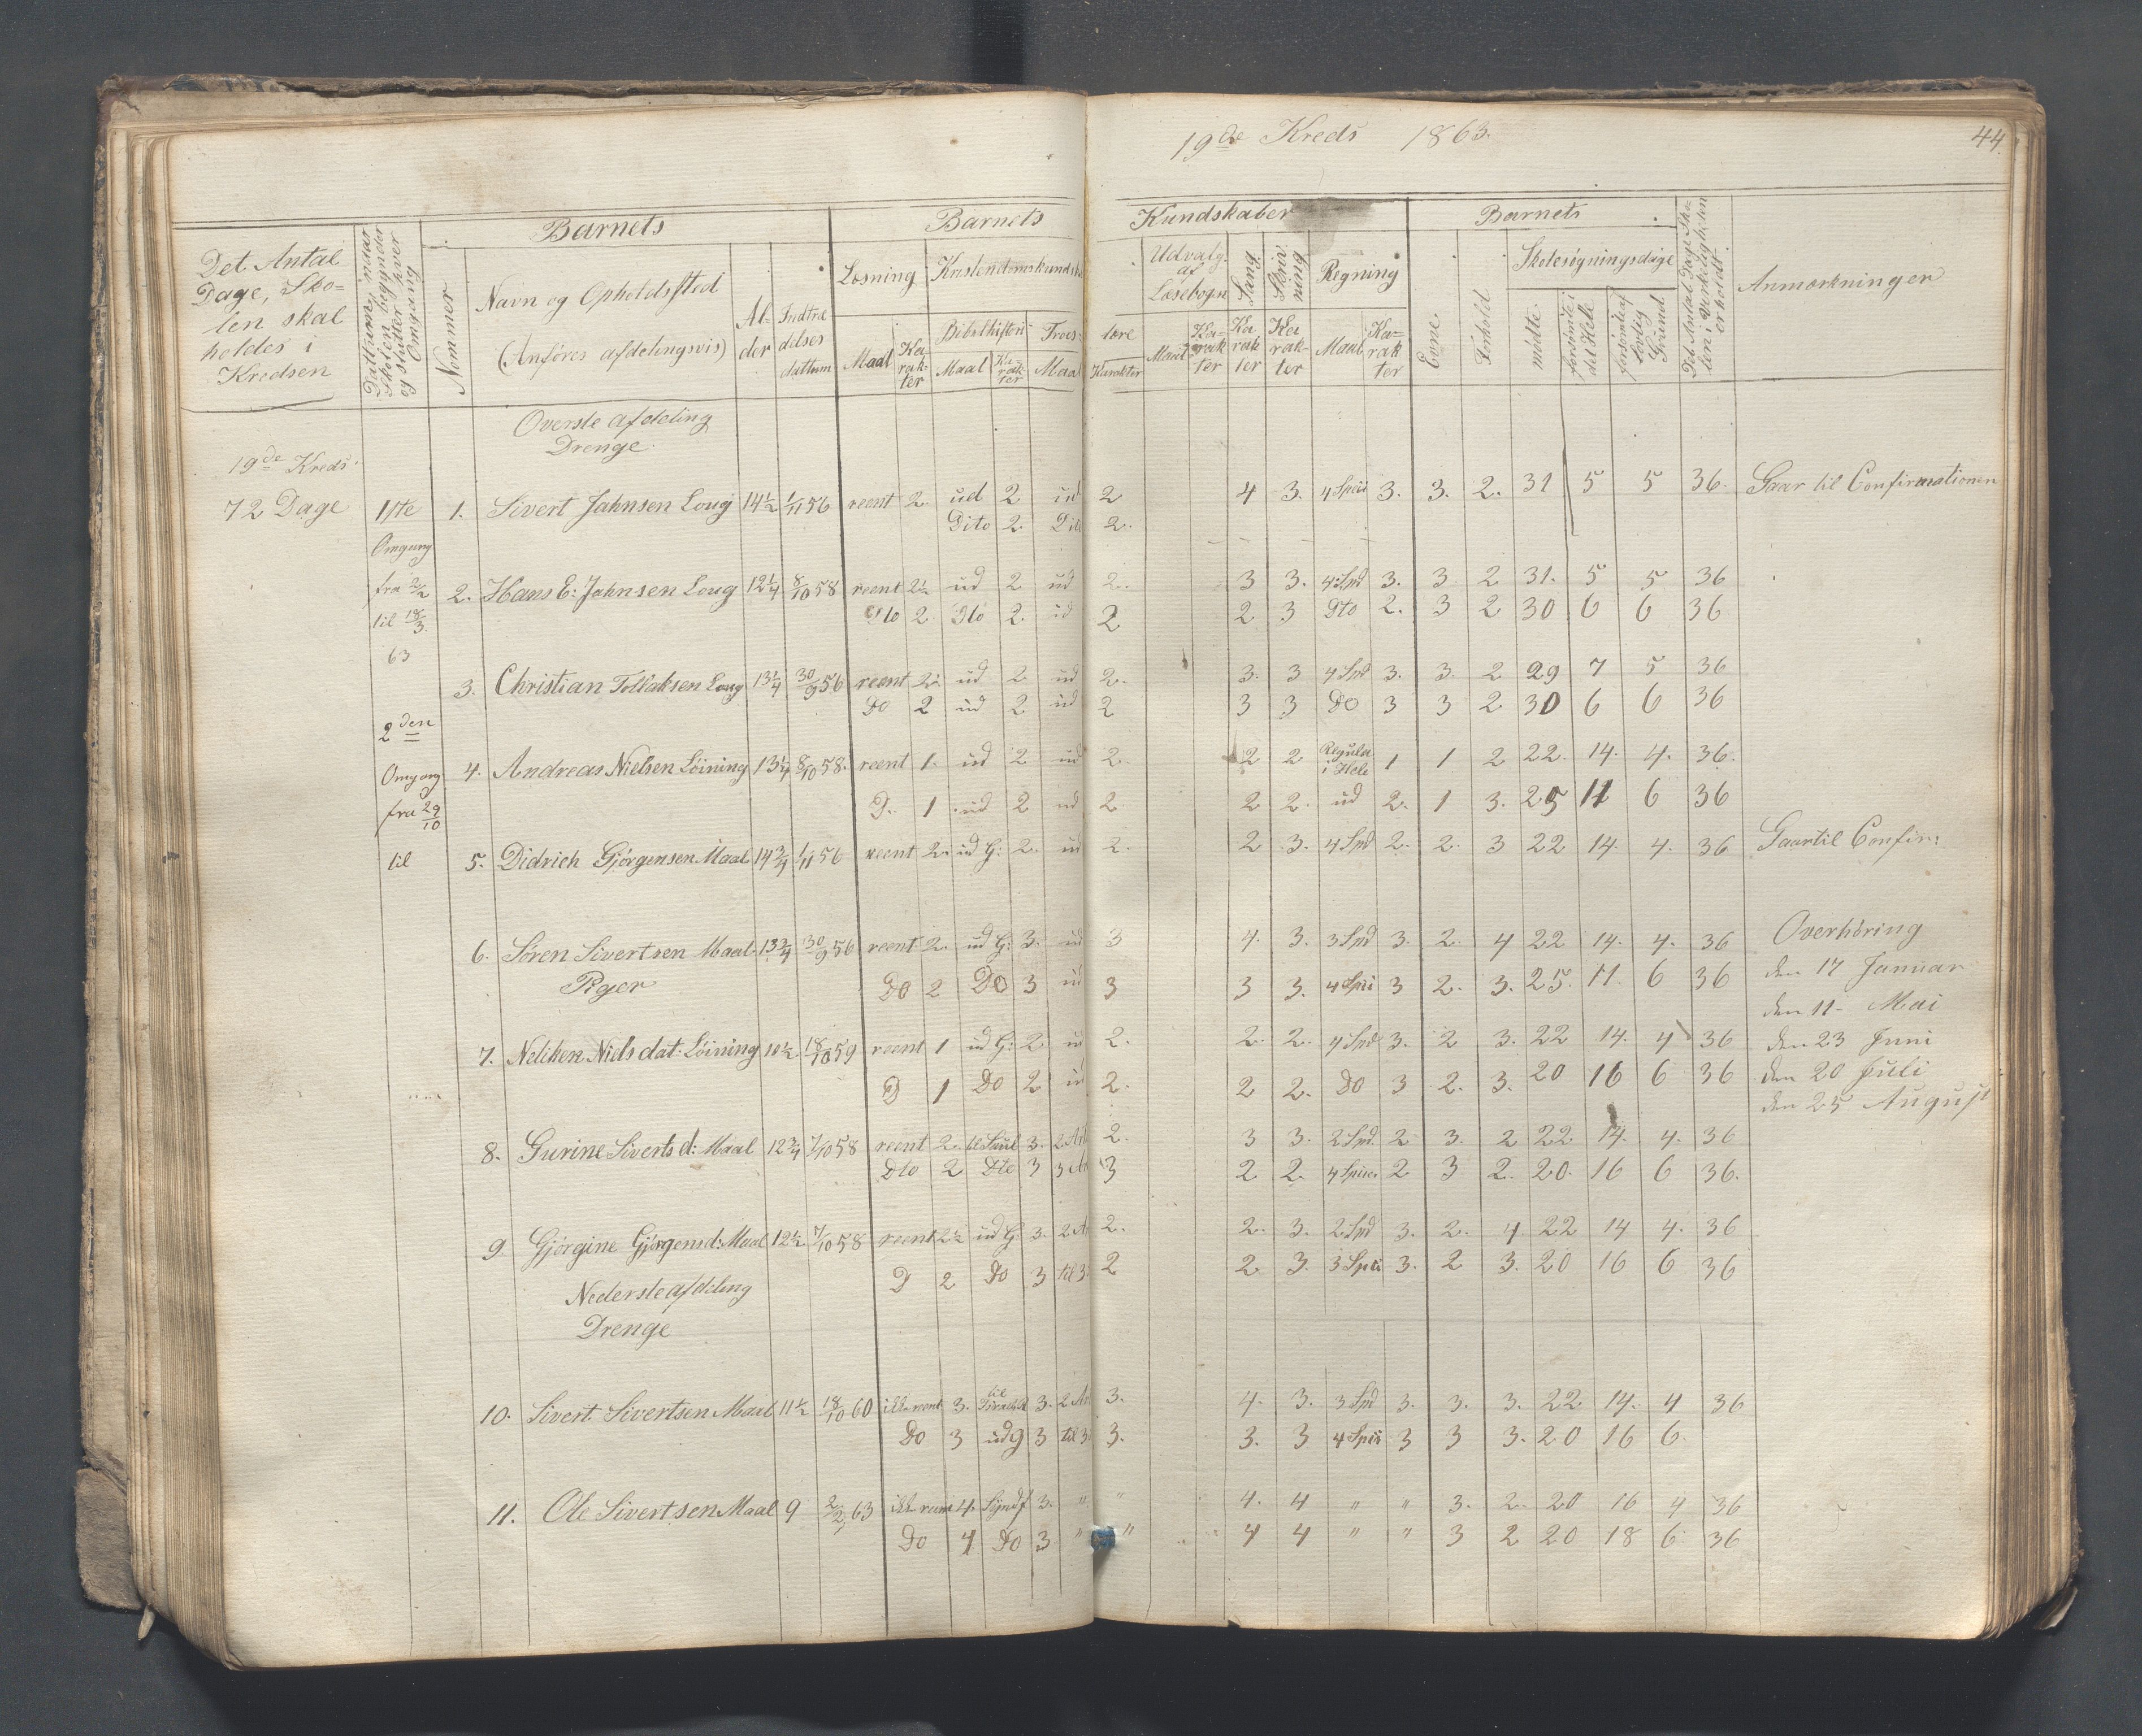 19de Kreds 1863.
44
Barnets
Barnets
Kundskaber
Barnets
Det Antal Dage, Skolen skal holdes i Kredsen
Dattum, naar Skolen begynder og slutter hver Omgang
Nommer
Navn og Opholdssted
(Anføres afdelingsvis)
Alder
Indtrædelses dattum
Læsning
Maal
Karakter
Kristendomskundsk
Bibelhistori
Maal
Karakter
Troes-
Maal
lære
Karakter
Udvalg af Læsebogn
Maal
Karakter
Sang
Karakter
Skrivning
Karakter
Regning
Maal
Karakter
Evne
Forhold
Skolesøgningsdage
mødte
forsømte i det Hele
forsømte af lovlig Grund
Det Antal Dage Skolen i Virkeligheden er holdt
Anmærkninger
Overste afdeling
Drenge
19de Kreds
72 Dage
1ste
Omgang
fra 2/2
til 18/3
63
2den
Omgang
fra 29/10
til
1. Sivert Jahnsen Loug 14½ 1/11 56 reent 2. ud 2 ud 2 4 3. 4 Speci 3. 3. 2. 31 5 5 36. Gaar til Confirmationen
Dito 2. Dito 2.
2. Hans E: Jahnsen Loug 12¼ 8/10 58 reent 2½ ud 2 ud 2. 3 3. 4 Spd 3. 3 2 31. 5 5 36
Dto 2 Dto 2. ud 2 2 3 Dto 2. 3 2 30 6 6 36
3. Christian Tollaksen Loug 13¼ 30/9 56 reent 2½ ud 2 ud 2. 3. 3 4 Spd 3. 3. 2 29 7 5 36
Do 2 ud 2 ud 2 3 3 Do 3 3 2 30 6 6 36
4. Andreas Nielsen Löining 13¼ 8/10 58. reent 1. ud 2 ud 2. 2 2 Regula i Hele 1 1 2 22. 14. 4. 36.
D. 1 ud 2 ud 2 2 2. ud 2. 1 3. 25 11 6 36
5. Didrich Gjörgensen Maal 14¾ 1/11 56 reent 2. ud G: 2. ud 2. 2 3. 4 Spd 2. 2. 3 22 14. 4. 36 Gaar til Confir:
6. Sören Sivertsen Maal 13¾ 30/9 56 reent 2. ud G: 3. ud 3 4. 3. 3 Spd 3. 2. 4 22 14. 4. 36 Overhöring
Piger
Do 2 Do 3 ud 3 3 3. 4 Speci 3 2. 3. 25. 11. 6 36 den 17 Januar
den 11- Mai
7. Neliken Nielsdat: Löining 10½ 18/10 59 reent 1 ud G: 2 ud 2. 2. 2. 4 Spd 3. 2 3. 22 14. 4 36 den 23 Juni
D 1 Do 2 ud 2. 2 2. Do 3 2. 3. 20 16 6 36 den 20 Juli
den 25 August
8. Gurine Siverts d: Maal 12¾ 7/10 58 reent 2. til Saul 3. 2 Ar 2. 3 3. 2 Spd. 2 3. 2 22 14. 4. 36
Dto 2 Dto 3 3 Ar 3 2 2. 4 Speci 2 3 2. 20. 16 6 36.
9 Gjörgine Gjörgensd: Maal 12½ 7/10 58 reent 2½ ud G: 3. 2 Ar 2. 2. 3. 2 Spd 3. 2. 4 22 14 4. 36
D 2 Do 3 til 3 2 2. 3. 3 Speci 3. 2 3. 20 16 6 36
Nederste afdeling
Drenge
10. Sivert Sivertsen Maal 11½ 18/10 60 ikke reent 3. til 3. 2 Ar 3. 4. 3. 3 Spd 3. 3. 3. 22 14. 4 36
Do 3 ud G 3 til 3. 3. 3. 3 4 Speci 3 3 3. 20 16 6.
11. Ole Sivertsen Maal 9 2/2 63 ikke reent 4. Syndf 3. " " 4. 4 " " 3. 2. 20 16 4 36
Do 4 Do 3 " " 4 4 " " 3 2 20 18 6 36